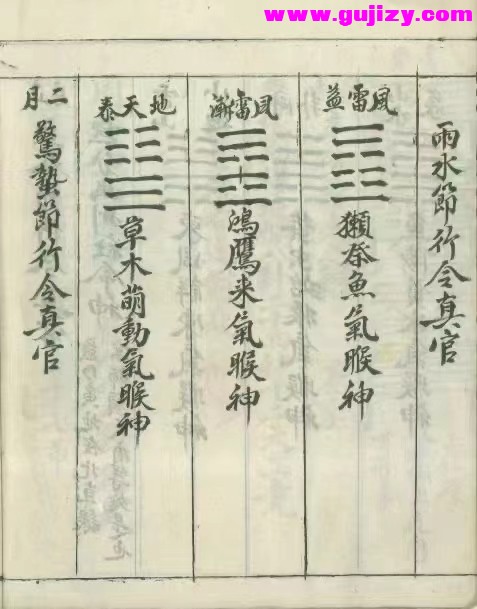 www.gujizy.com
雨水節行令真官
風雷益
獺祭魚氣睺神
風雷漸
鴻鷹来氣睺神
地天泰
草木萌動氣睺神
二月
驚蟄節行令真官